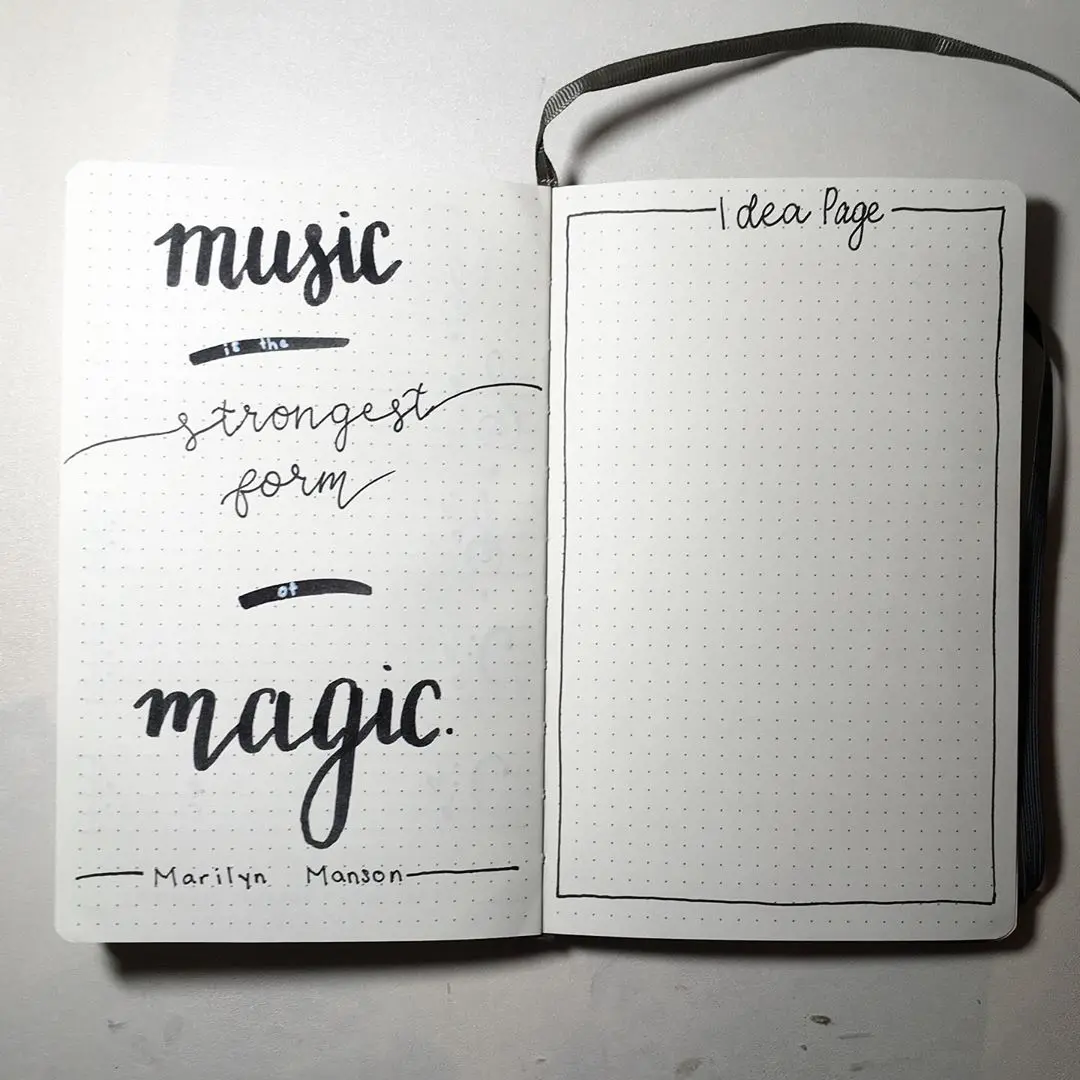 music
is the
strongest
form
of
magic.
Marilyn Manson
Idea Page